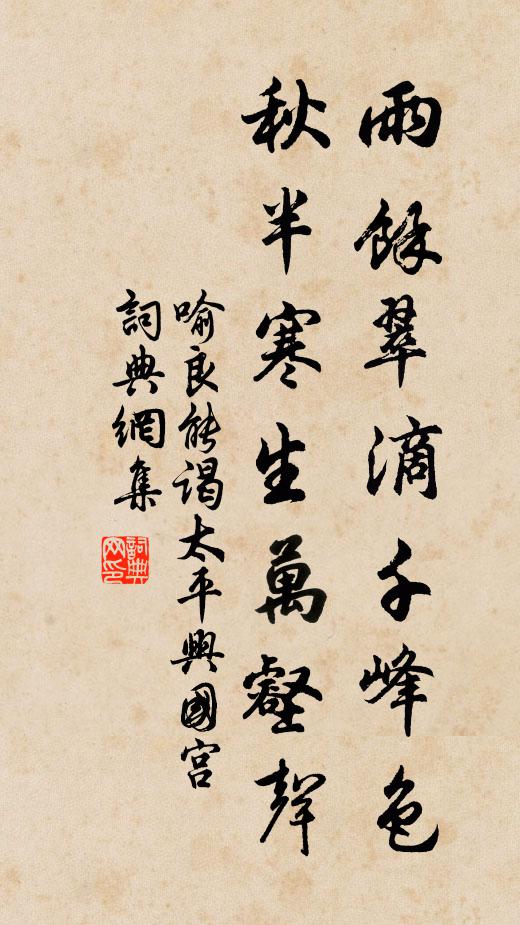 雨餘翠滴千峰色
秋半寒生萬壑聲
喻良能謁太平興國宮
詞典網集
詞典網印